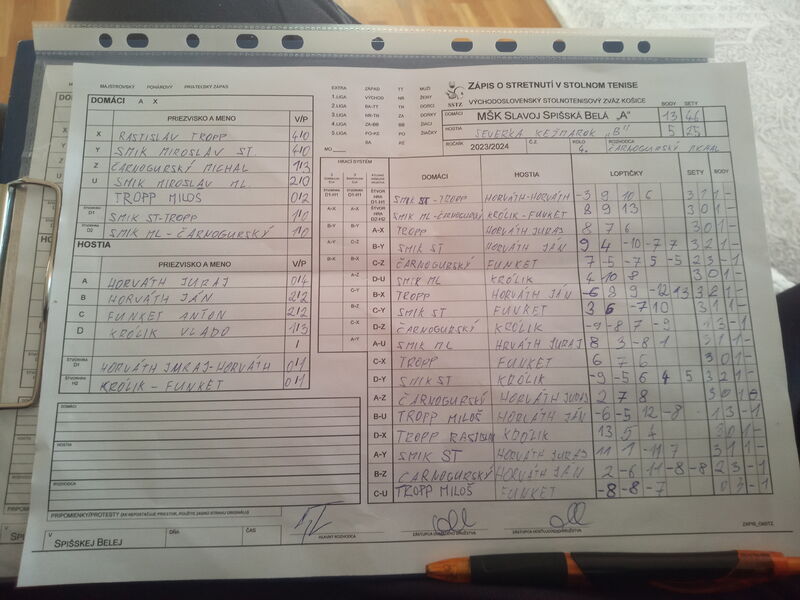 MAJSTROVSKÝ POHÁROVÝ PRIATEĽSKÝ ZÁPAS
DOMÁCI A X
PRIEZVISKO A MENO V/P
X RASTISLAV TROPP 4/0
Y SMIK MIROSLAV ST. 4/0
Z ČARNOGURSKÝ MICHAL 1/3
U SMIK MIROSLAV ML. 2/0
TROPP MILOŠ 0/2
ŠTVORHRA D1 SMIK ST-TROPP 1/0
ŠTVORHRA D2 SMIK ML-ČARNOGURSKÝ 1/0
HOSTIA
PRIEZVISKO A MENO V/P
A HORVÁTH JURAJ 0/4
B HORVÁTH JÁN 2/2
C FUNKET ANTON 2/2
D KRÓLIK VLADO 1/3
/
HORVÁTH JURAJ-HORVÁTH 0/1
ŠTVORHRA H2 KRÓLIK - FUNKET 0/1
DOMÁCI
HOSTIA
ROZHODCA
PRIPOMIENKY/PROTESTY
V SPIŠSKEJ BELEJ DŇA ČAS
HLAVNÝ ROZHODCA
EXTRA ZÁPAD TT MUŽI
1.LIGA VÝCHOD NR ŽENY
2.LIGA BA-TT TN DORCI
3.LIGA NR-TN ZA DORKY
4.LIGA ZA-BB BB ŽIACI
5.LIGA PO-KE PO ŽIAČKY
BA KE
MO
SSTZ
ZÁPIS O STRETNUTÍ V STOLNOM TENISE
VÝCHODOSLOVENSKÝ STOLNOTENISOVÝ ZVÄZ KOŠICE
BODY SETY
DOMÁCI MŠK SLAVOJ SPIŠSKÁ BELÁ „A" 13 46
HOSTIA SEVERKA KEŽMAROK „B" 5 25
ROČNÍK 2023/2024 Č.Z. KOLO ROZHODCA
HRACÍ SYSTÉM
DOMÁCI HOSTIA LOPTIČKY SETY BODY
SMIK ST-TROPP HORVÁTH-HORVÁTH -3 9 10 6 3 1 1 -
SMIK ML-ČARNOGURSKÝ KRÓLIK-FUNKET 8 9 13 3 0 1 -
A-X TROPP HORVÁTH JURAJ 8 7 6 3 0 1 -
B-Y SMIK ST HORVÁTH JÁN 9 4 -10 -7 7 3 2 1 -
C-Z ČARNOGURSKÝ FUNKET 7 -5 -7 5 -5 2 3 - 1
D-U SMIK ML KRÓLIK 4 10 8 3 0 1 -
B-X TROPP HORVÁTH JÁN -6 8 9 -12 13 3 2 1 -
C-Y SMIK ST FUNKET 8 6 -7 10 3 1 1 -
D-Z ČARNOGURSKÝ KRÓLIK -9 -8 7 -9 1 3 - 1
A-U SMIK ML HORVÁTH JURAJ 8 3 -8 1 3 1 1 -
C-X TROPP FUNKET 6 7 6 3 0 1 -
D-Y SMIK ST KRÓLIK -9 -5 6 4 5 3 2 1 -
A-Z ČARNOGURSKÝ HORVÁTH JURAJ 2 7 8 3 0 1 0
B-U TROPP MILOŠ HORVÁTH JÁN -6 -5 12 -8 1 3 - 1
D-X TROPP RASTISLAV KRÓLIK 13 5 4 3 0 1 -
A-Y SMIK ST HORVÁTH JURAJ 11 1 -11 7 3 1 1 -
B-Z ČARNOGURSKÝ HORVÁTH JÁN 2 -6 11 -8 -8 2 3 - 1
C-U TROPP MILOŠ FUNKET -8 -8 -7 0 3 - 1